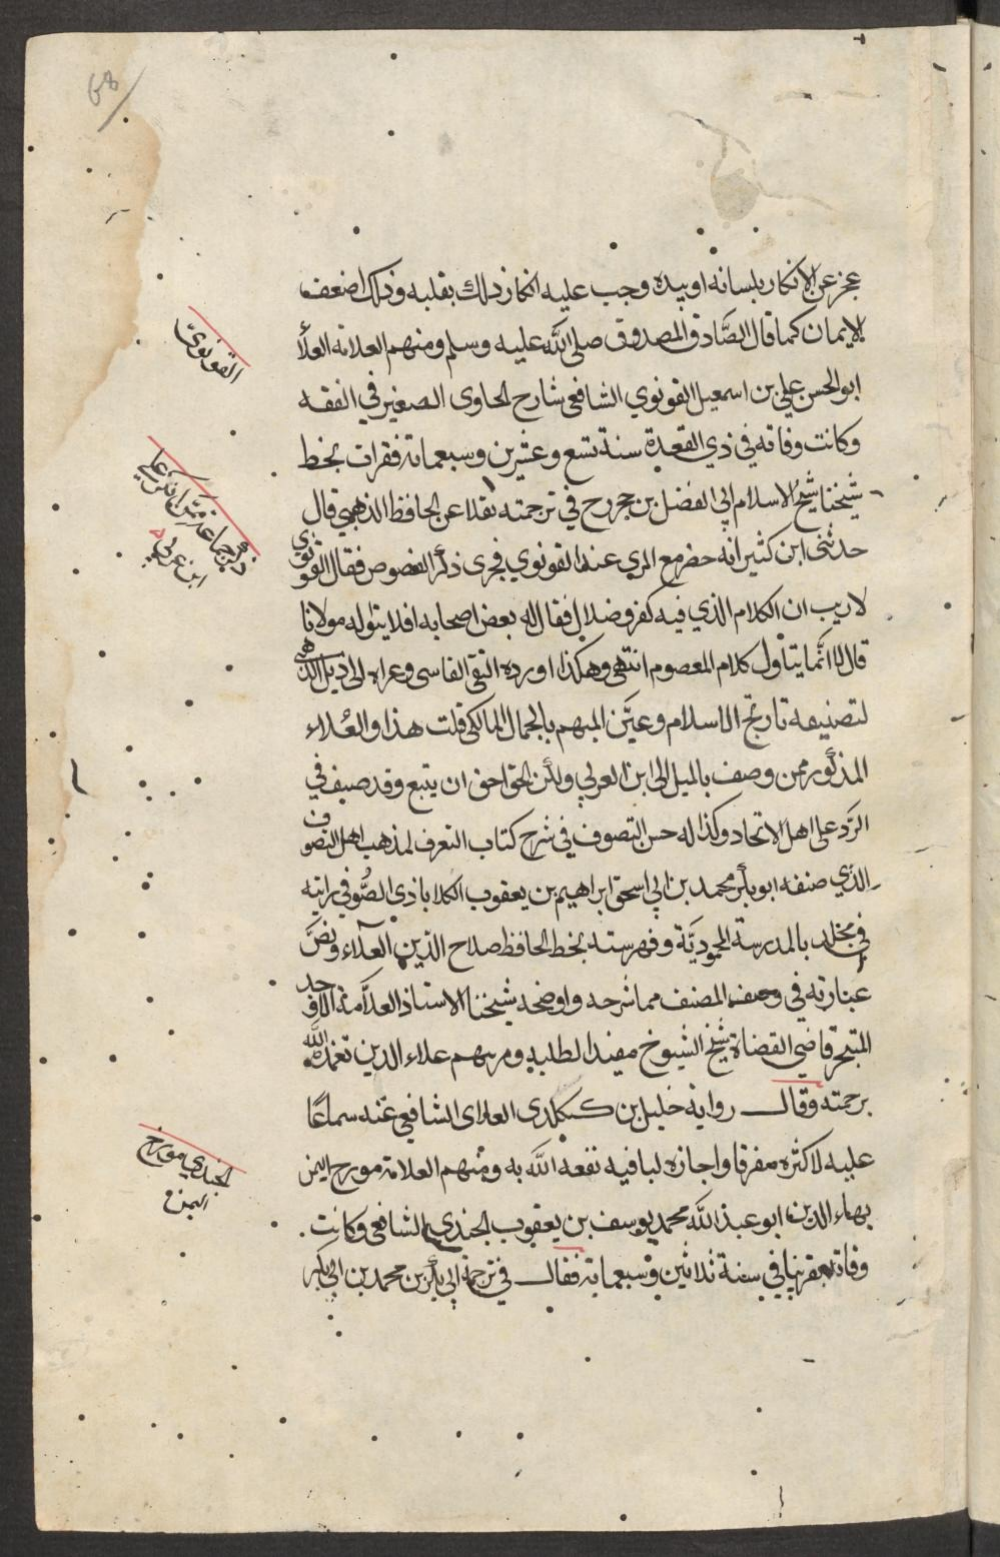 68
عجز عن الانكار بلسانه او بيده وجب عليه انكار ذلك بقلبه وذلك اضعف
الايمان كما قال الصَّادق المصدوق صلى الله عليه وسلم ومنهم العلامة العلاُ
ابو الحسن علي بن اسمعيل القونوي الشافعي شارح الحاوى الصغير في الفقه
وكانت وفاته في ذي القعدة سنة تسع وعشرين وسبعمائة فقرات بخط
شيخنا شيخ الاسلام ابي الفضل بن حجر رح في ترجمته نقلا عن الحافظ الذهبي قال
حدثني ابن كثير انه حضر مع المزي عند القونوي فجرى ذكر الفصوص فقال القونوي
لا ريب ان الكلام الذي فيه كفر وضلال فقال له بعض اصحابه افلا يتوله مولانا
قال لا انَّما يتاول كلام المعصوم انتهى وهكذا اورده التقى الفاسى وعزاه الى ذيل الذهبى
لتصنيفه تاريخ الاسلام وعيَّن المبهم بالجمال المالكي قلت هذا والعُلاء
المذكور ممن وصف بالميل الى ابن العربي ولكن الحق احق ان يتبع وقد صنف في
الرَّد على اهل الاتحاد وكذا له حسن التصوف في شرح كتاب التعرف لمذهب اهل التصوف
الذي صنفه ابو بكر محمد بن ابي اسحق ابراهيم بن يعقوب الكلاباذى الصُّوفي رايته
في مجلد بالمدرسة المحموديَّة وفهرسته بخط الحافظ صلاح الدين العلاء ونصَّ
عبارته في وصف المصنف مما شرحه واوضحه شيخنا الاستاذ العلاَّمة الاوحد
المتبحر قاضي القضاة شيخ الشيوخ مفيد الطلبه ومربيهم علاء الدين تغمده الله
برحمته وقال رواية خليل بن كيكلدى العلاى الشافعي عنه سماعًا
عليه لاكثره مفرقا واجازه لباقيه نفعه الله به ومنهم العلامة مورخ اليمن
بهاء الدين ابو عبد الله محمد يوسف بن يعقوب الجندي الشافعي وكانت
وفاته بعد في سنة ثلاثين وسبعمائة فقال في ترجمة ابي بكر بن محمد بن ابي بكر
القونوىّ
ذكر جماعة ممن انكر على
ابن عربى
الجندي مورخ
اليمن